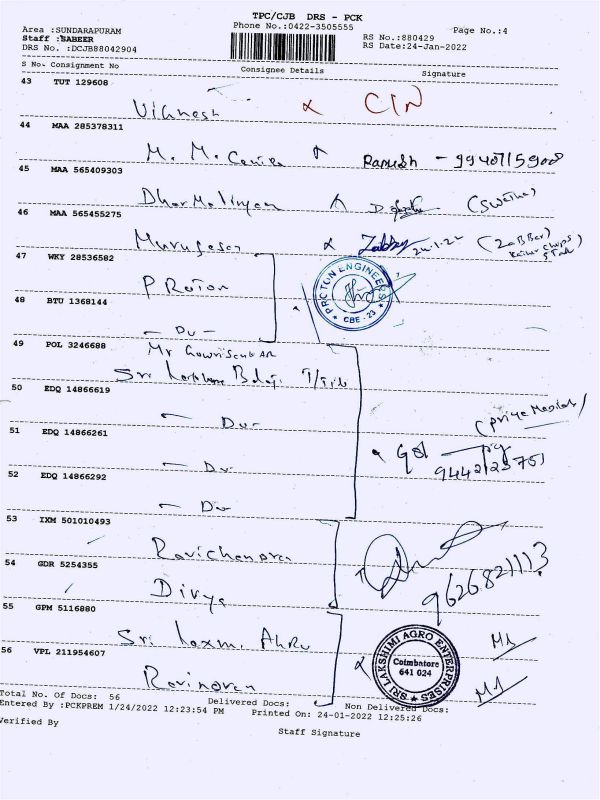 TPC/CJB DRS - PCK
Area :SUNDARAPURAM Phone No.:0422-3505555 Page No.:4
Staff :SABEER RS No.:880429
DRS No. :DCJB88042904 RS Date:24-Jan-2022
S No. Consignment No Consignee Details Signature
43 TUT 129608
Vighnesh CIN
44 MAA 285378311
M. M. Ramesh - 9940715908
45 MAA 565409303
Dharmalingam D (Swetha)
46 MAA 565455275
Murugesan Zabby 24.1.22 (ZaBBer)
47 WKY 28536582
PROTON ENGINEERS ★ CBE - 23 ★
Proton
48 BTU 1368144
- Do -
49 POL 3246688
Mr Gowrisankar
Sri Balaji
50 EDQ 14866619
- Do -
51 EDQ 14866261
- Do - 9442123751
52 EDQ 14866292
- Do -
53 IXM 501010493
Ravichandran
54 GDR 5254355
Divya 9626821113
55 GPM 5116880
Sri Laxmi Agro
SRI LAKSHIMI AGRO ENTERPRISES ★ Coimbatore 641 024
56 VPL 211954607
Ravindran
Total No. Of Docs: 56 Delivered Docs: Non Delivered Docs:
Entered By :PCKPREM 1/24/2022 12:23:54 PM Printed On: 24-01-2022 12:25:26
Verified By Staff Signature